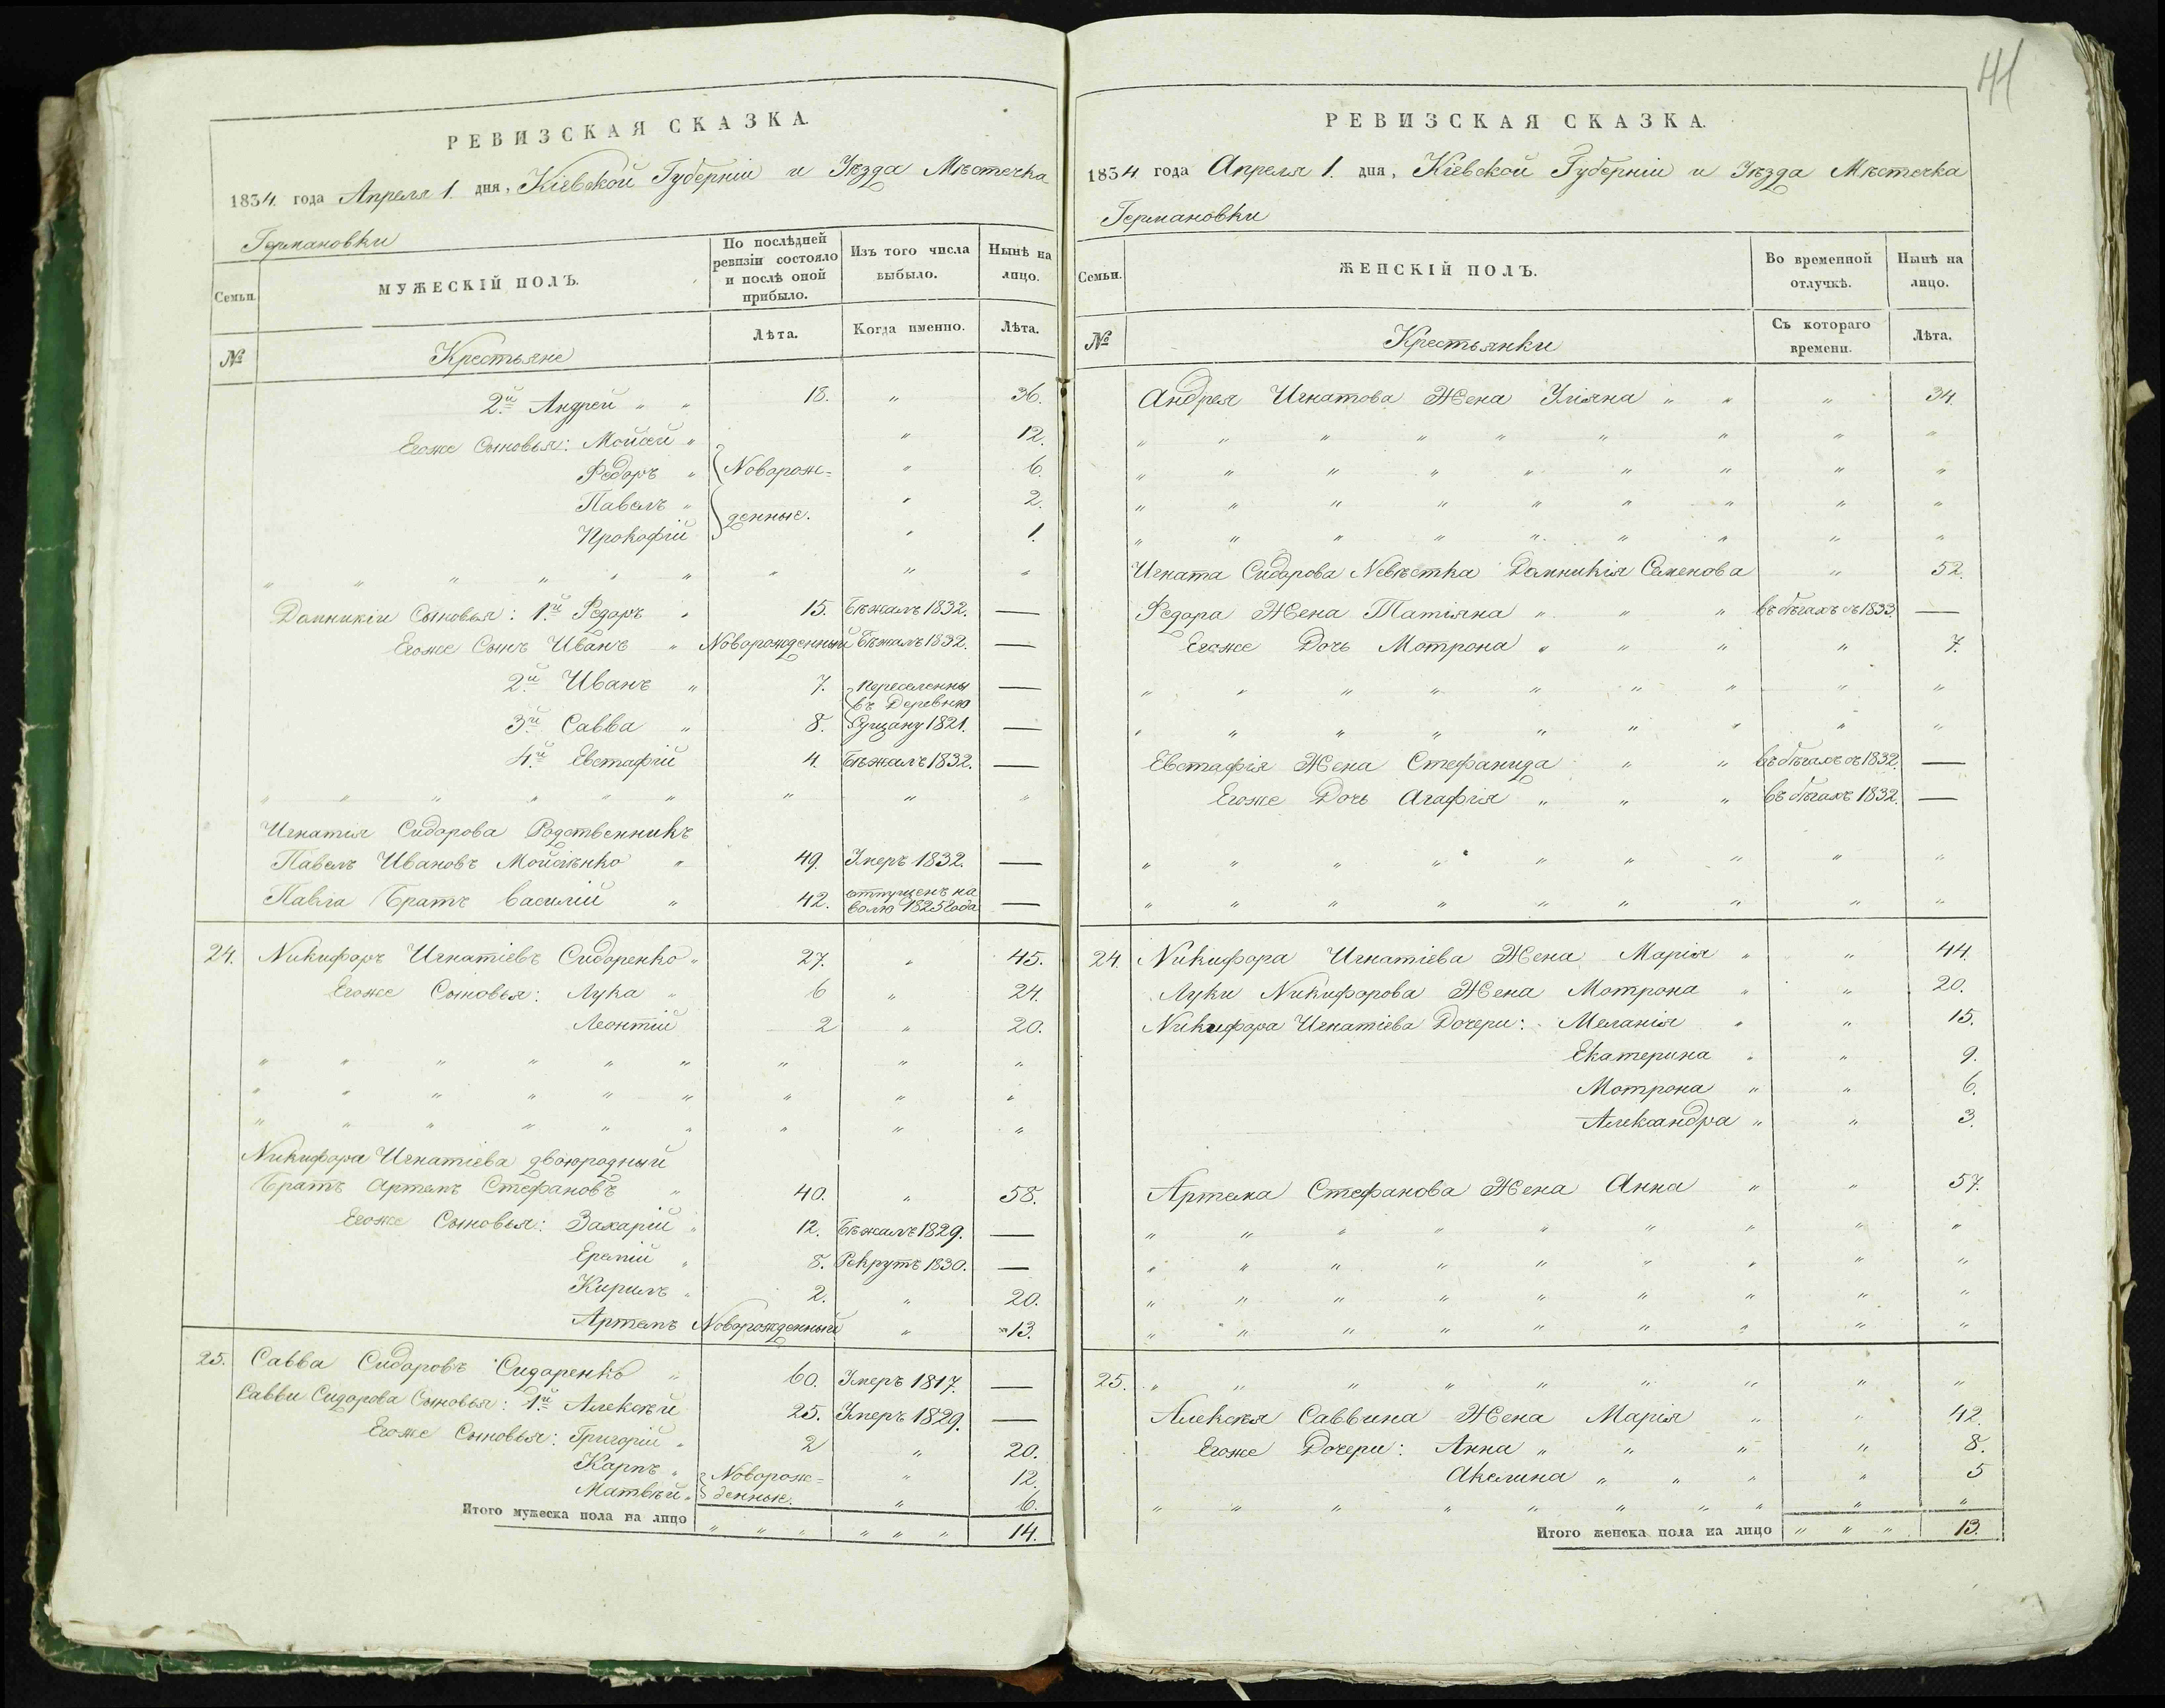 41
РЕВИЗСКАЯ СКАЗКА.
1834 года Апреля 1. дня, Кіевской Губерніи и Уѣзда Мѣстечка
Германовки
Семьи.
МУЖЕСКІЙ ПОЛЪ.
По послѣдней ревизіи состояло и послѣ оной прибыло.
Изъ того числа выбыло.
Нынѣ на лицо.
№
Крестьяне
Лѣта.
Когда именно.
Лѣта.
2й Андрей " " 18. " 36.
Егоже Сыновья: Мойсей " " 12.
Федоръ " Новорож= " 6.
Павелъ " " 2.
Прокофій денные. " 1.
" " " " " " " " "
Домникіи Сыновья: 1й Федоръ " 15. Бѣжалъ 1832. —
Егоже Сынъ Иванъ " Новорожденный Бѣжалъ 1832. —
2й Иванъ " 7. переселенны —
въ Деревню
3й Савва " 8. 1821. —
4й Евстафій 4. Бѣжалъ 1832. —
" " " " " " " " "
Игнатія Сидорова Родственникъ
Павелъ Ивановъ Мойсѣнко " 49. Умеръ 1832. —
Павла Братъ Василій " 42. отпущенъ на —
волю 1825 года
24. Никифоръ Игнатіевъ Сидоренко " 27. " 45.
Егоже Сыновья: Лука " 6 " 24.
Леонтій 2 " 20.
" " " " " " " " "
" " " " " " " " "
" " " " " " " " "
Никифора Игнатіева двоюродный
Братъ Артемъ Стефановъ " 40. " 58.
Егоже Сыновья: Захарій " 12. Бѣжалъ 1829. —
Еремій " 8. Рекрутъ 1830. —
Кирилъ " 2. " 20.
Артемъ Новорожденный " 13.
25. Савва Сидоровъ Сидаренко " 60. Умеръ 1817. —
Савви Сидорова Сыновья: 1й Алексѣй 25. Умеръ 1829. —
Егоже Сыновья: Григорій " 2 " 20.
Карпъ " Новорож= " 12.
Матвѣй " денные. " 6.
Итого мужеска пола на лицо " " " " " " 14.
РЕВИЗСКАЯ СКАЗКА.
1834 года Апреля 1. дня, Кіевской Губерніи и Уѣзда Мѣстечка
Германовки
Семьи.
ЖЕНСКІЙ ПОЛЪ.
Во временной отлучкѣ.
Нынѣ на лицо.
№
Крестьянки
Съ котораго времени.
Лѣта.
Андрея Игнатова Жена Уліяна " " " 34.
" " " " " " " " "
" " " " " " " " "
" " " " " " " " "
" " " " " " " " "
Игната Сидорова Невѣстка Домникія Семенова " 52.
Федора Жена Татіяна " " " въ бѣгахъ съ 1833. —
Егоже Дочь Мотрона " " " " 7.
" " " " " " " " "
" " " " " " " " "
Евстафія Жена Стефанида " " въ бѣгахъ съ 1832. —
Егоже Дочь Агафія " " " въ бѣгахъ 1832. —
" " " " " " " " "
" " " " " " " " "
24. Никифора Игнатіева Жена Марія " " 44.
Луки Никифорова Жена Мотрона " " 20.
Никифора Игнатіева Дочери: Меланія " " 15.
Екатерина " " 9.
Мотрона " " 6.
Александра " " 3.
Артема Стефанова Жена Анна " " 57.
" " " " " " " " "
" " " " " " " " "
" " " " " " " " "
" " " " " " " " "
25. " " " " " " " " "
Алексѣя Саввина Жена Марія " " 42.
Егоже Дочери: Анна " " " " 8.
Акелина " " " " 5
" " " " " " " " " "
Итого женска пола на лицо " " " 13.